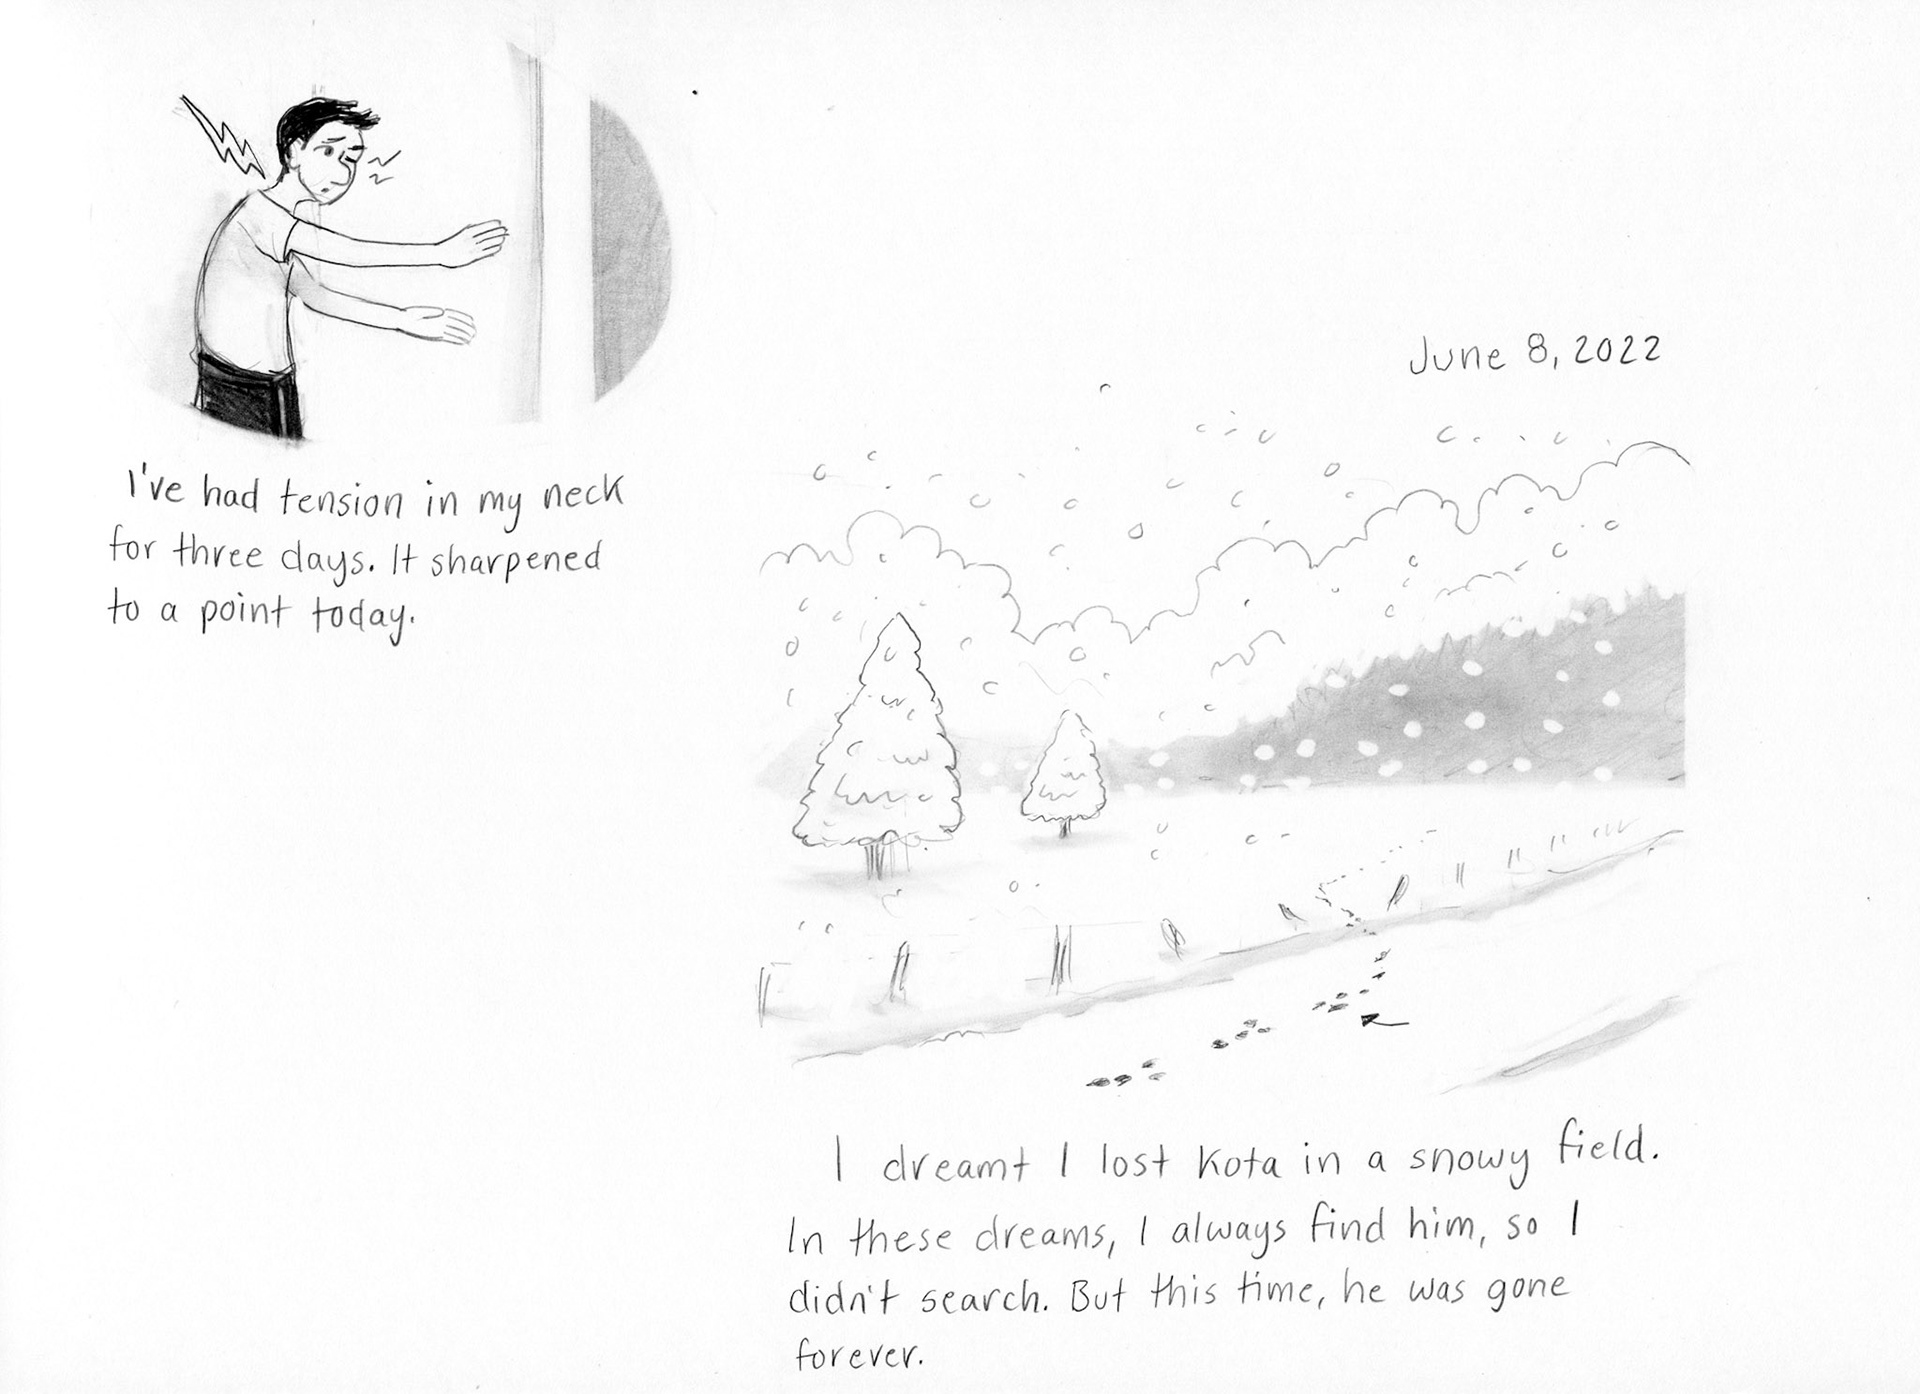 I've had tension in my neck
for three days. It sharpened
to a point today.
June 8, 2022
I dreamt I lost Kota in a snowy field.
In these dreams, I always find him, so I
didn't search. But this time, he was gone
forever.